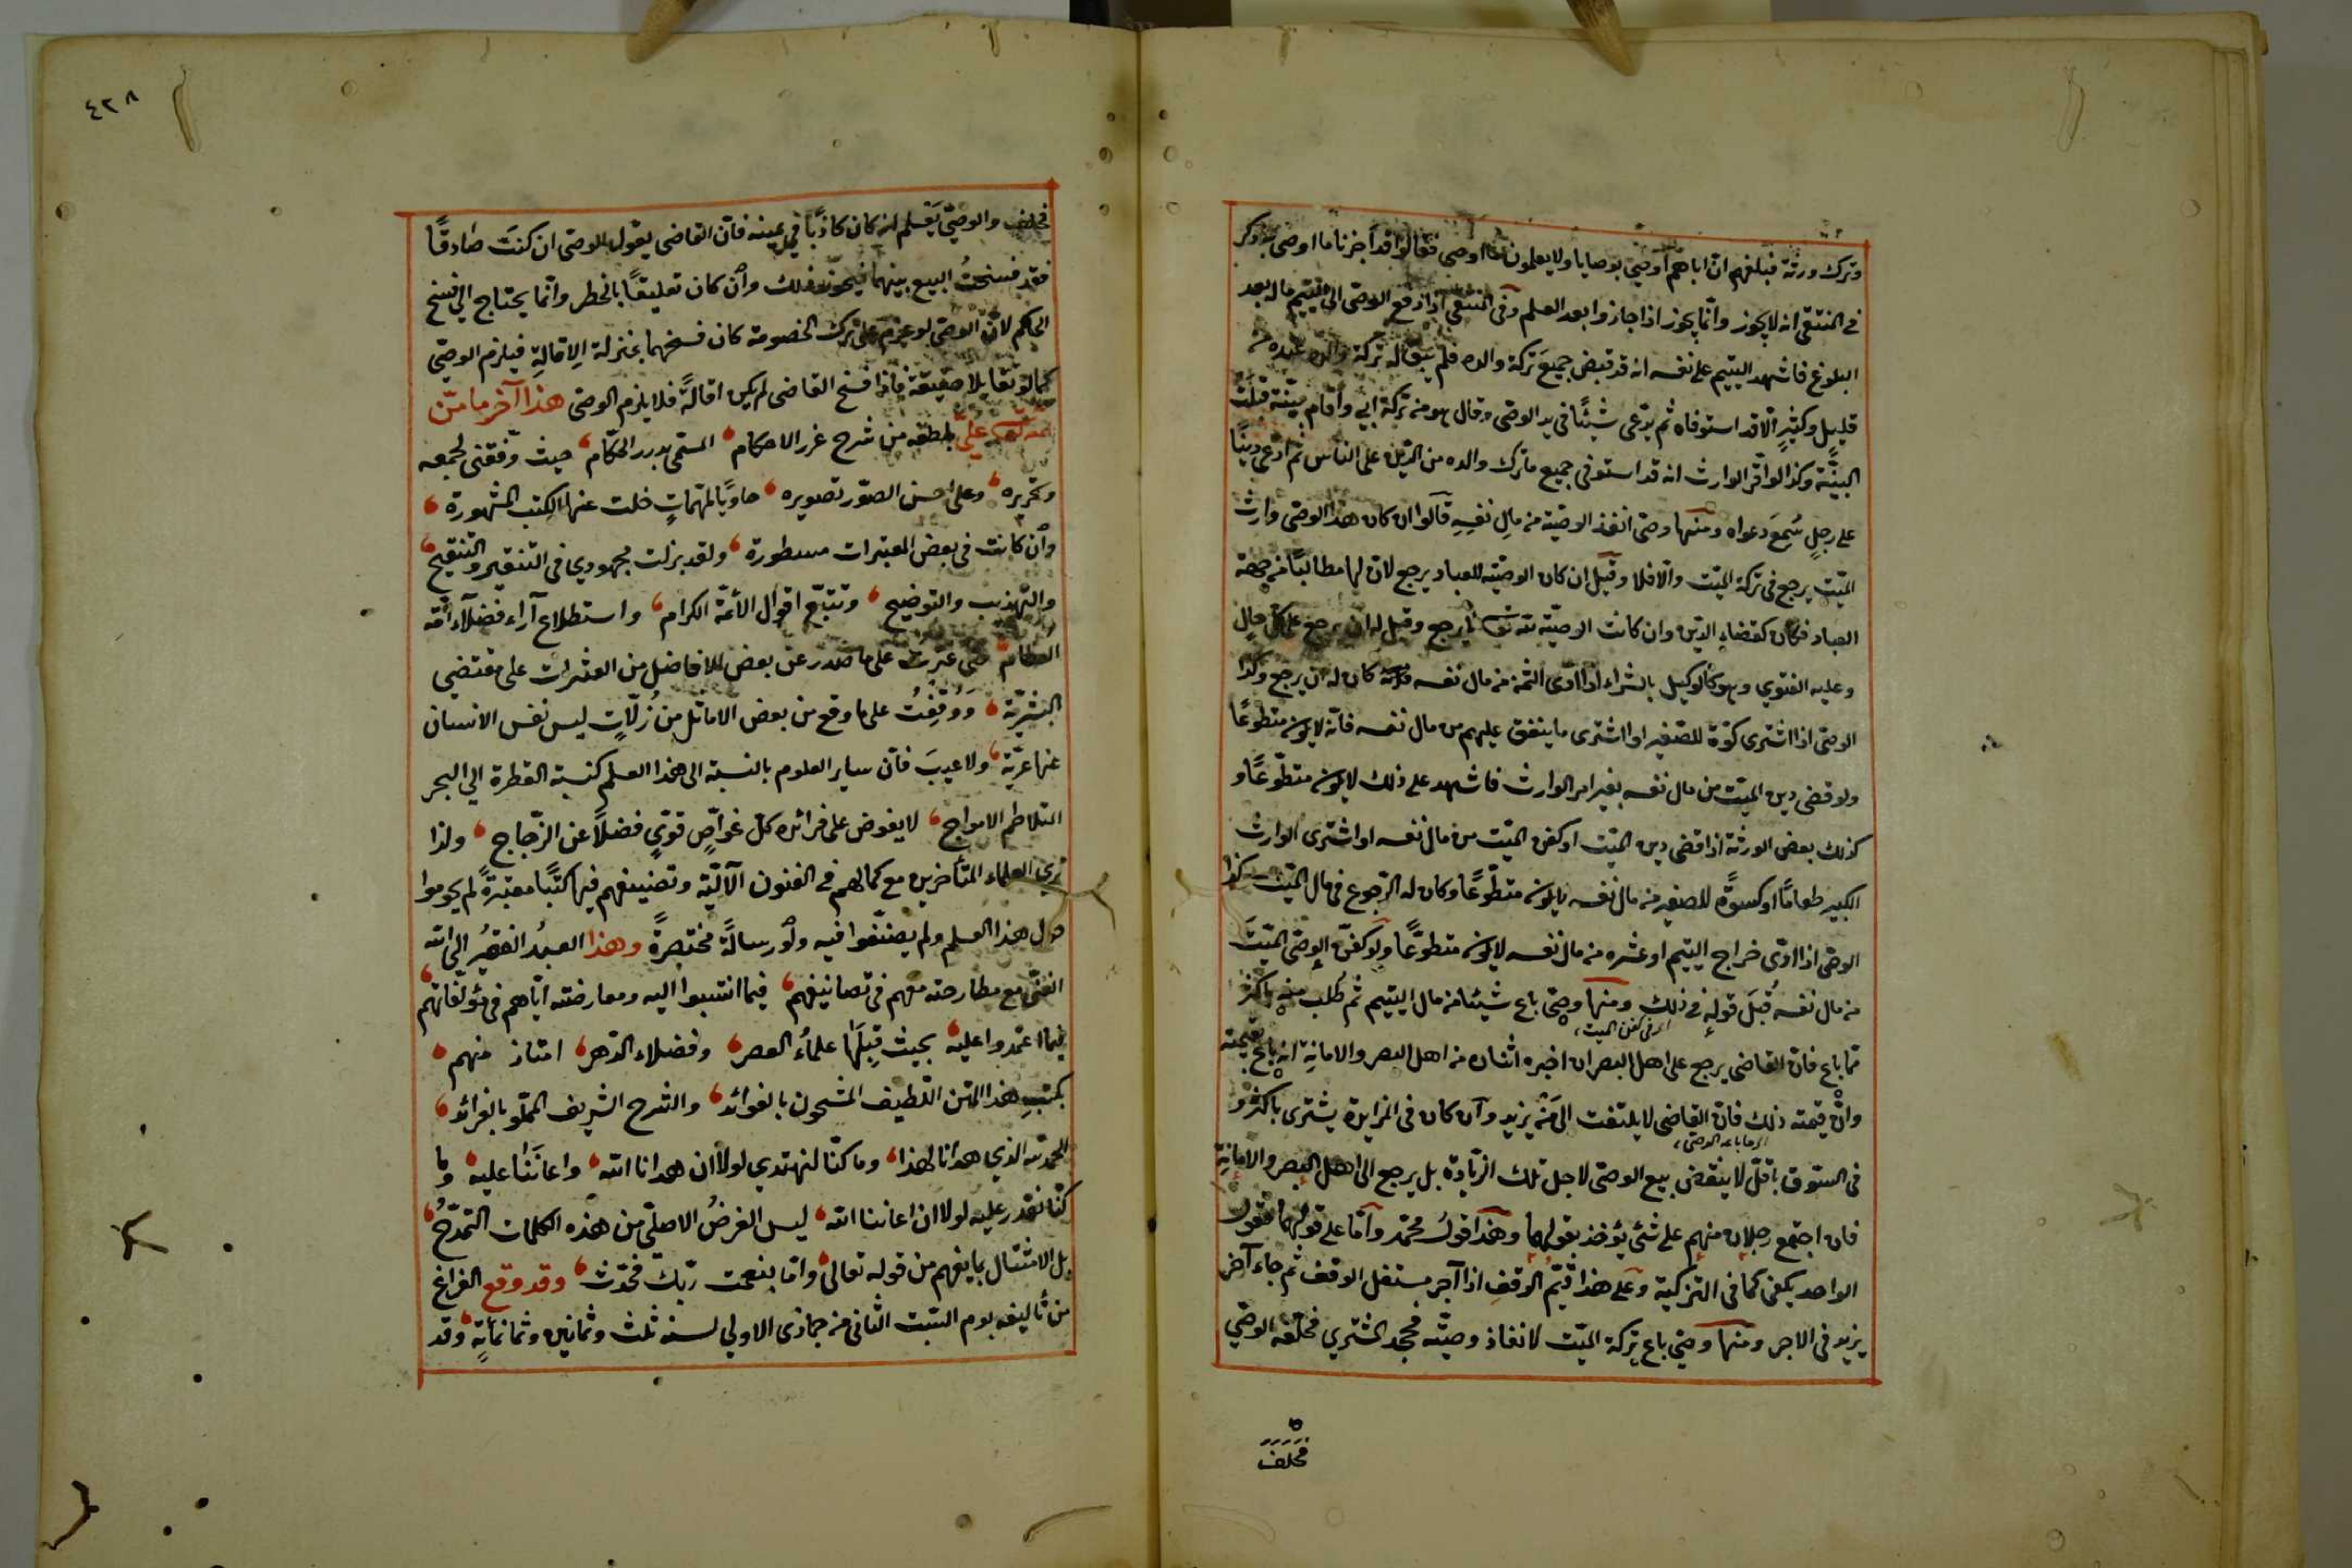 وترك ورثة فبلغهم ان اباهم اوصى بوصايا ولا يعلمون ما اوصى فقالوا قد اجزنا ما اوصى به ذكر
في المنتقى انه لا يجوز وانما يجوز اذا اجازوا بعد العلم وفي المنتقى اذا دفع الوصي الى اليتيم ماله بعد
البلوغ فاشهد اليتيم على نفسه انه قد قبض جميع تركة والده فلم يبق له تركة والده عنده من
قليل وكثير الا قد استوفاه ثم يدعى شيئا في يد الوصي وقال هو من تركة ابي واقام بينة قبلت
البينة وكذا لو اقر الوارث انه قد استوفى جميع ما ترك والده من الدين على الناس ثم ادعى دينا
على رجل سمع دعواه ومنها وصى انفذ الوصية من مال نفسه قالوا ان كان هذا الوصي وارث
الميت يرجع في تركة الميت والا فلا وقيل ان كان الوصية للعباد يرجع لان لها مطالبا من جهة
العباد فكان كقضاء الدين وان كانت الوصية لله تعالى لا يرجع وقيل له ان يرجع على كل حال
وعليه الفتوى وهو كالوكيل بالشراء اذا ادى الثمن من مال نفسه كان له ان يرجع وكذا
الوصي اذا اشترى كسوة للصغير او اشترى ما ينفق عليهم من مال نفسه فانه لا يكون متطوعا
ولو قضى دين الميت من مال نفسه بغير امر الوارث فاشهد على ذلك لا يكون متطوعا و
كذلك بعض الورثة اذا قضى دين الميت او كفن الميت من مال نفسه او اشترى الوارث
الكبير طعاما او كسوة للصغير من مال نفسه لا يكون متطوعا وكان له الرجوع في مال الميت وكذا
الوصي اذا ادى خراج اليتيم او عشره من مال نفسه لا يكون متطوعا ولو كفن الوصي الميت
من مال نفسه قبل قوله في ذلك ومنها وصى باع شيئا من مال اليتيم ثم طلب منه باكثر
اى في كفن الميت
مما باع فان القاضي يرجع على اهل البصر ان اخبره اثنان من اهل البصر والامانة انه باع بقيمته
وان قيمته ذلك فان القاضي لا يلتفت الى من يزيد وان كان في المزايدة يشترى باكثر و
اى ما باعه الوصي
في السوق باقل لا ينتقض بيع الوصي لاجل تلك الزيادة بل يرجع الى اهل البصر والامانة
فان اجتمع رجلان منهم على شئ يؤخذ بقولهما وهذا قول محمد واما على قولهما فقول
الواحد يكفى كما في التزكية وعلى هذا قيم الوقف اذا آجر مستغل الوقف ثم جاء آخر
يزيد في الاجر ومنها وصى باع تركة الميت لانفاذ وصيته فجحد المشترى فحلفه الوصي
فحلف
٤٢٨
فحلف والوصي يعلم انه كان كاذبا في يمينه فان القاضي يقول للوصي ان كنت صادقا
فقد فسخت البيع بينهما فيجوز ذلك وان كان تعليقا بالخطر وانما يحتاج الى فسخ
الحاكم لان الوصي لو عزم على ترك الخصومة كان فسخهما بمنزلة الاقالة فيلزم الوصي
كما لو تقايلا حقيقة فاذا فسخ القاضي لم يكن اقالة فلا يلزم الوصي هذا آخر ما من
الله تعالى علي بلطفه من شرح غرر الاحكام المسمى بدرر الحكام حيث وفقني لجمعه
وتحريره وعلى احسن الصور تصويره حاويا لمهمات خلت عنها الكتب المشهورة
وان كانت في بعض المعتبرات مسطورة ولقد بذلت مجهودي في التنقير والتنقيح
والتهذيب والتوضيح وتتبع اقوال الائمة الكرام واستطلاع آراء فضلاء ائمة
العظام حتى عثرت على ما صدر عن بعض الافاضل من العثرات على مقتضى
البشرية ووقفت على ما وقع من بعض الاماثل من زلات ليس نفس الانسان
عنها عرية ولا عيب فان ساير العلوم بالنسبة الى هذا العلم كنسبة القطرة الى البحر
المتلاطم الامواج لا يغوص على فرائده كل غواص قوى فضلا عن الزجاج ولذا
ترى العلماء المتأخرين مع كمالهم في الفنون الآلية وتصنيفهم فيها كتبا معتبرة لم يحوموا
حول هذا العلم ولم يصنفوا فيه ولو رسالة مختصرة وهذا العبد الفقير الى الله
الغني مع مطارحته معهم في تصانيفهم فيما انتسبوا اليه ومعارضته اياهم في مؤلفاتهم
فيما اعتمدوا عليه بحيث قبلها علماء العصر وفضلاء الدهر امتاز منهم
بكتبه هذا المتن اللطيف المشحون بالفوائد والشرح الشريف المملو بالفرائد
الحمد لله الذي هدانا لهذا وما كنا لنهتدى لولا ان هدانا الله واعاننا عليه وما
كنا نقدر عليه لولا ان اعاننا الله ليس الغرض الاصلي من هذه الكلمات التمدح
بل الامتثال بما يفهم من قوله تعالى واما بنعمت ربك فحدث وقد وقع الفراغ
من تأليفه يوم السبت الثاني من جمادى الاولى لسنة ثلث وثمانين وثمانمأية وقد